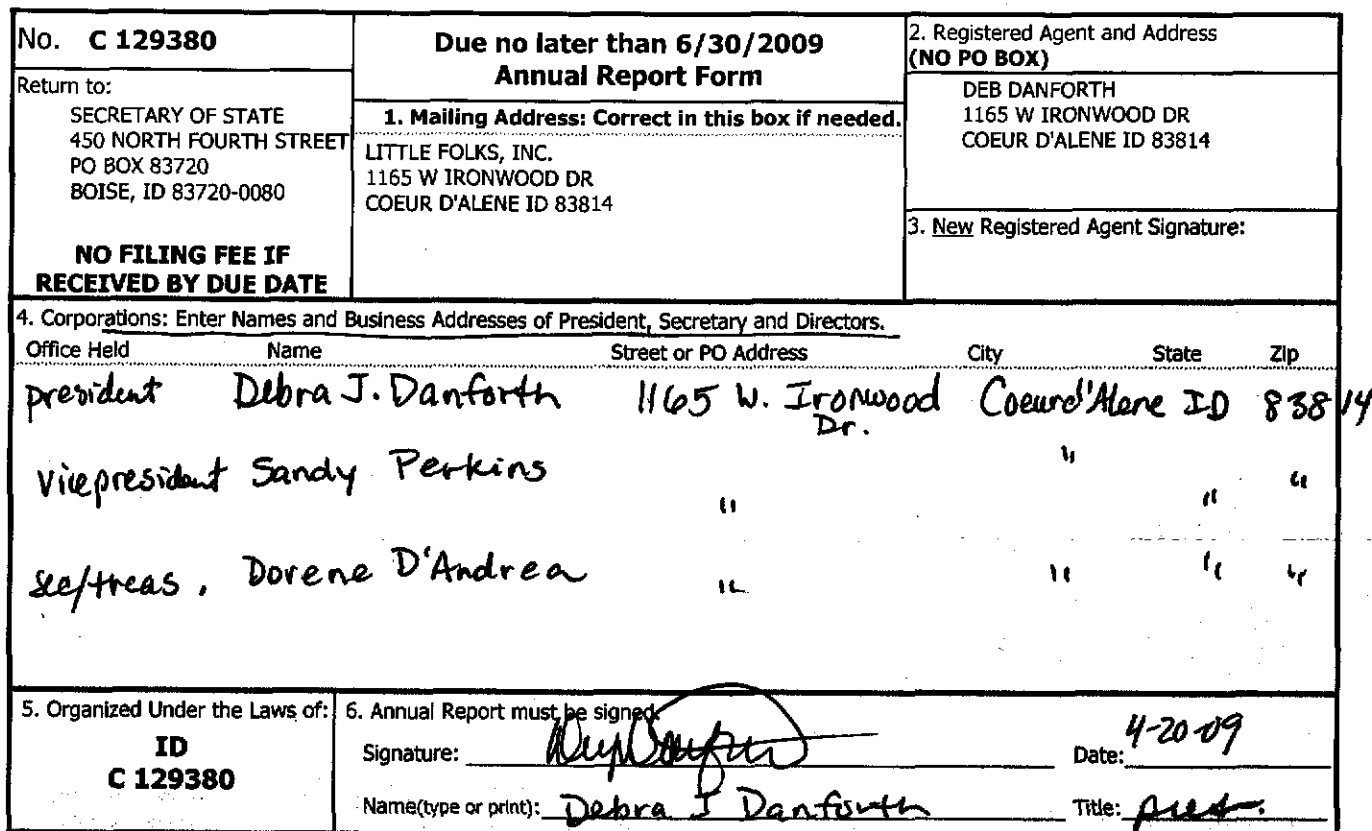 No. C 129380
Return to:
SECRETARY OF STATE
450 NORTH FOURTH STREET
PO BOX 83720
BOISE, ID 83720-0080
NO FILING FEE IF
RECEIVED BY DUE DATE
Due no later than 6/30/2009
Annual Report Form
1. Mailing Address: Correct in this box if needed.
LITTLE FOLKS, INC.
1165 W IRONWOOD DR
COEUR D'ALENE ID 83814
2. Registered Agent and Address
(NO PO BOX)
DEB DANFORTH
1165 W IRONWOOD DR
COEUR D'ALENE ID 83814
3. New Registered Agent Signature:
4. Corporations: Enter Names and Business Addresses of President, Secretary and Directors.
Office Held Name Street or PO Address City State Zip
president Debra J. Danforth 1165 W. Ironwood Coeur d'Alene ID 83814
Dr.
vice president Sandy Perkins " " " "
sec/treas. Dorene D'Andrea " " " "
5. Organized Under the Laws of:
ID
C 129380
6. Annual Report must be signed.
Signature:
Date: 4-20-09
Name(type or print): Debra J Danforth Title: pres.